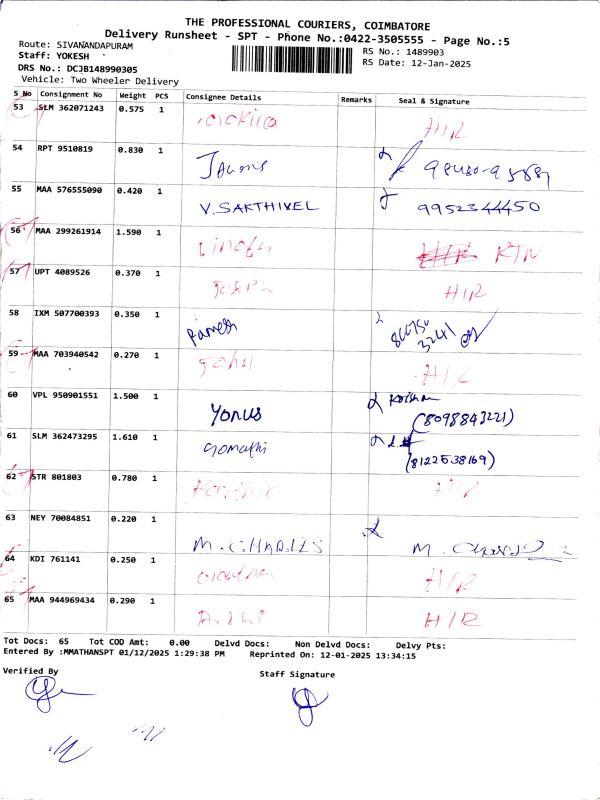 THE PROFESSIONAL COURIERS, COIMBATORE
Delivery Runsheet - SPT - Phone No.:0422-3505555 - Page No.:5
Route: SIVANANDAPURAM
RS No.: 1489903
Staff: YOKESH
RS Date: 12-Jan-2025
DRS No.: DCJB148990305
Vehicle: Two Wheeler Delivery
S No Consignment No Weight PCS Consignee Details Remarks Seal & Signature
53 SLM 362071243 0.575 1 H/R
54 RPT 9510819 0.830 1
55 MAA 576555090 0.420 1 V.SAKTHIVEL 9952344450
56 MAA 299261914 1.590 1 KTN
57 UPT 4089526 0.370 1 H/R
58 IXM 507700393 0.350 1 Ramesh
59 MAA 703940542 0.270 1 Gokul H/R
60 VPL 950901551 1.500 1 Yonus Krishna
(8098843221)
61 SLM 362473295 1.610 1 Gomathi
(8122538169)
62 STR 801803 0.780 1 H/R
63 NEY 70084851 0.220 1 M. CHARLES M. Charles
64 KDI 761141 0.250 1 H/R
65 MAA 944969434 0.290 1 H/R
Tot Docs: 65 Tot COD Amt: 0.00 Delvd Docs: Non Delvd Docs: Delvy Pts:
Entered By :MMATHANSPT 01/12/2025 1:29:38 PM Reprinted On: 12-01-2025 13:34:15
Verified By
Staff Signature